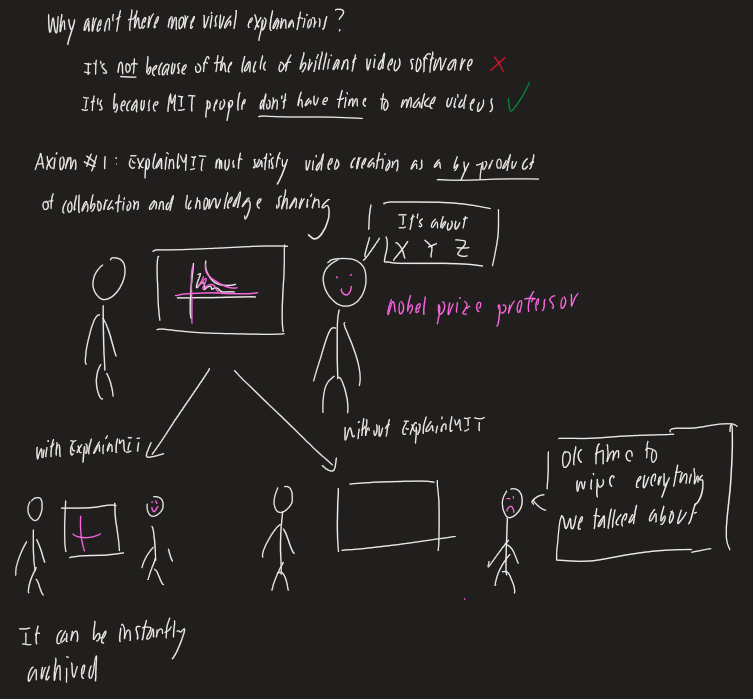 Why aren't there more visual explanations?
It's not because of the lack of brilliant video software ✗
It's because MIT people don't have time to make videos ✓
Axiom #1: ExplainMIT must satisfy video creation as a by product
of collaboration and knowledge sharing
It's about
X Y Z
nobel prize professor
with ExplainMIT
without ExplainMIT
OK time to
wipe everything
we talked about
It can be instantly
archived